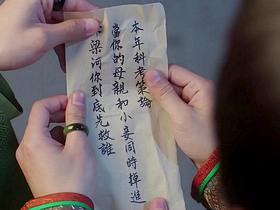 本年科考策論
當你的母親和小妾同時掉進
梁河你到底先救誰